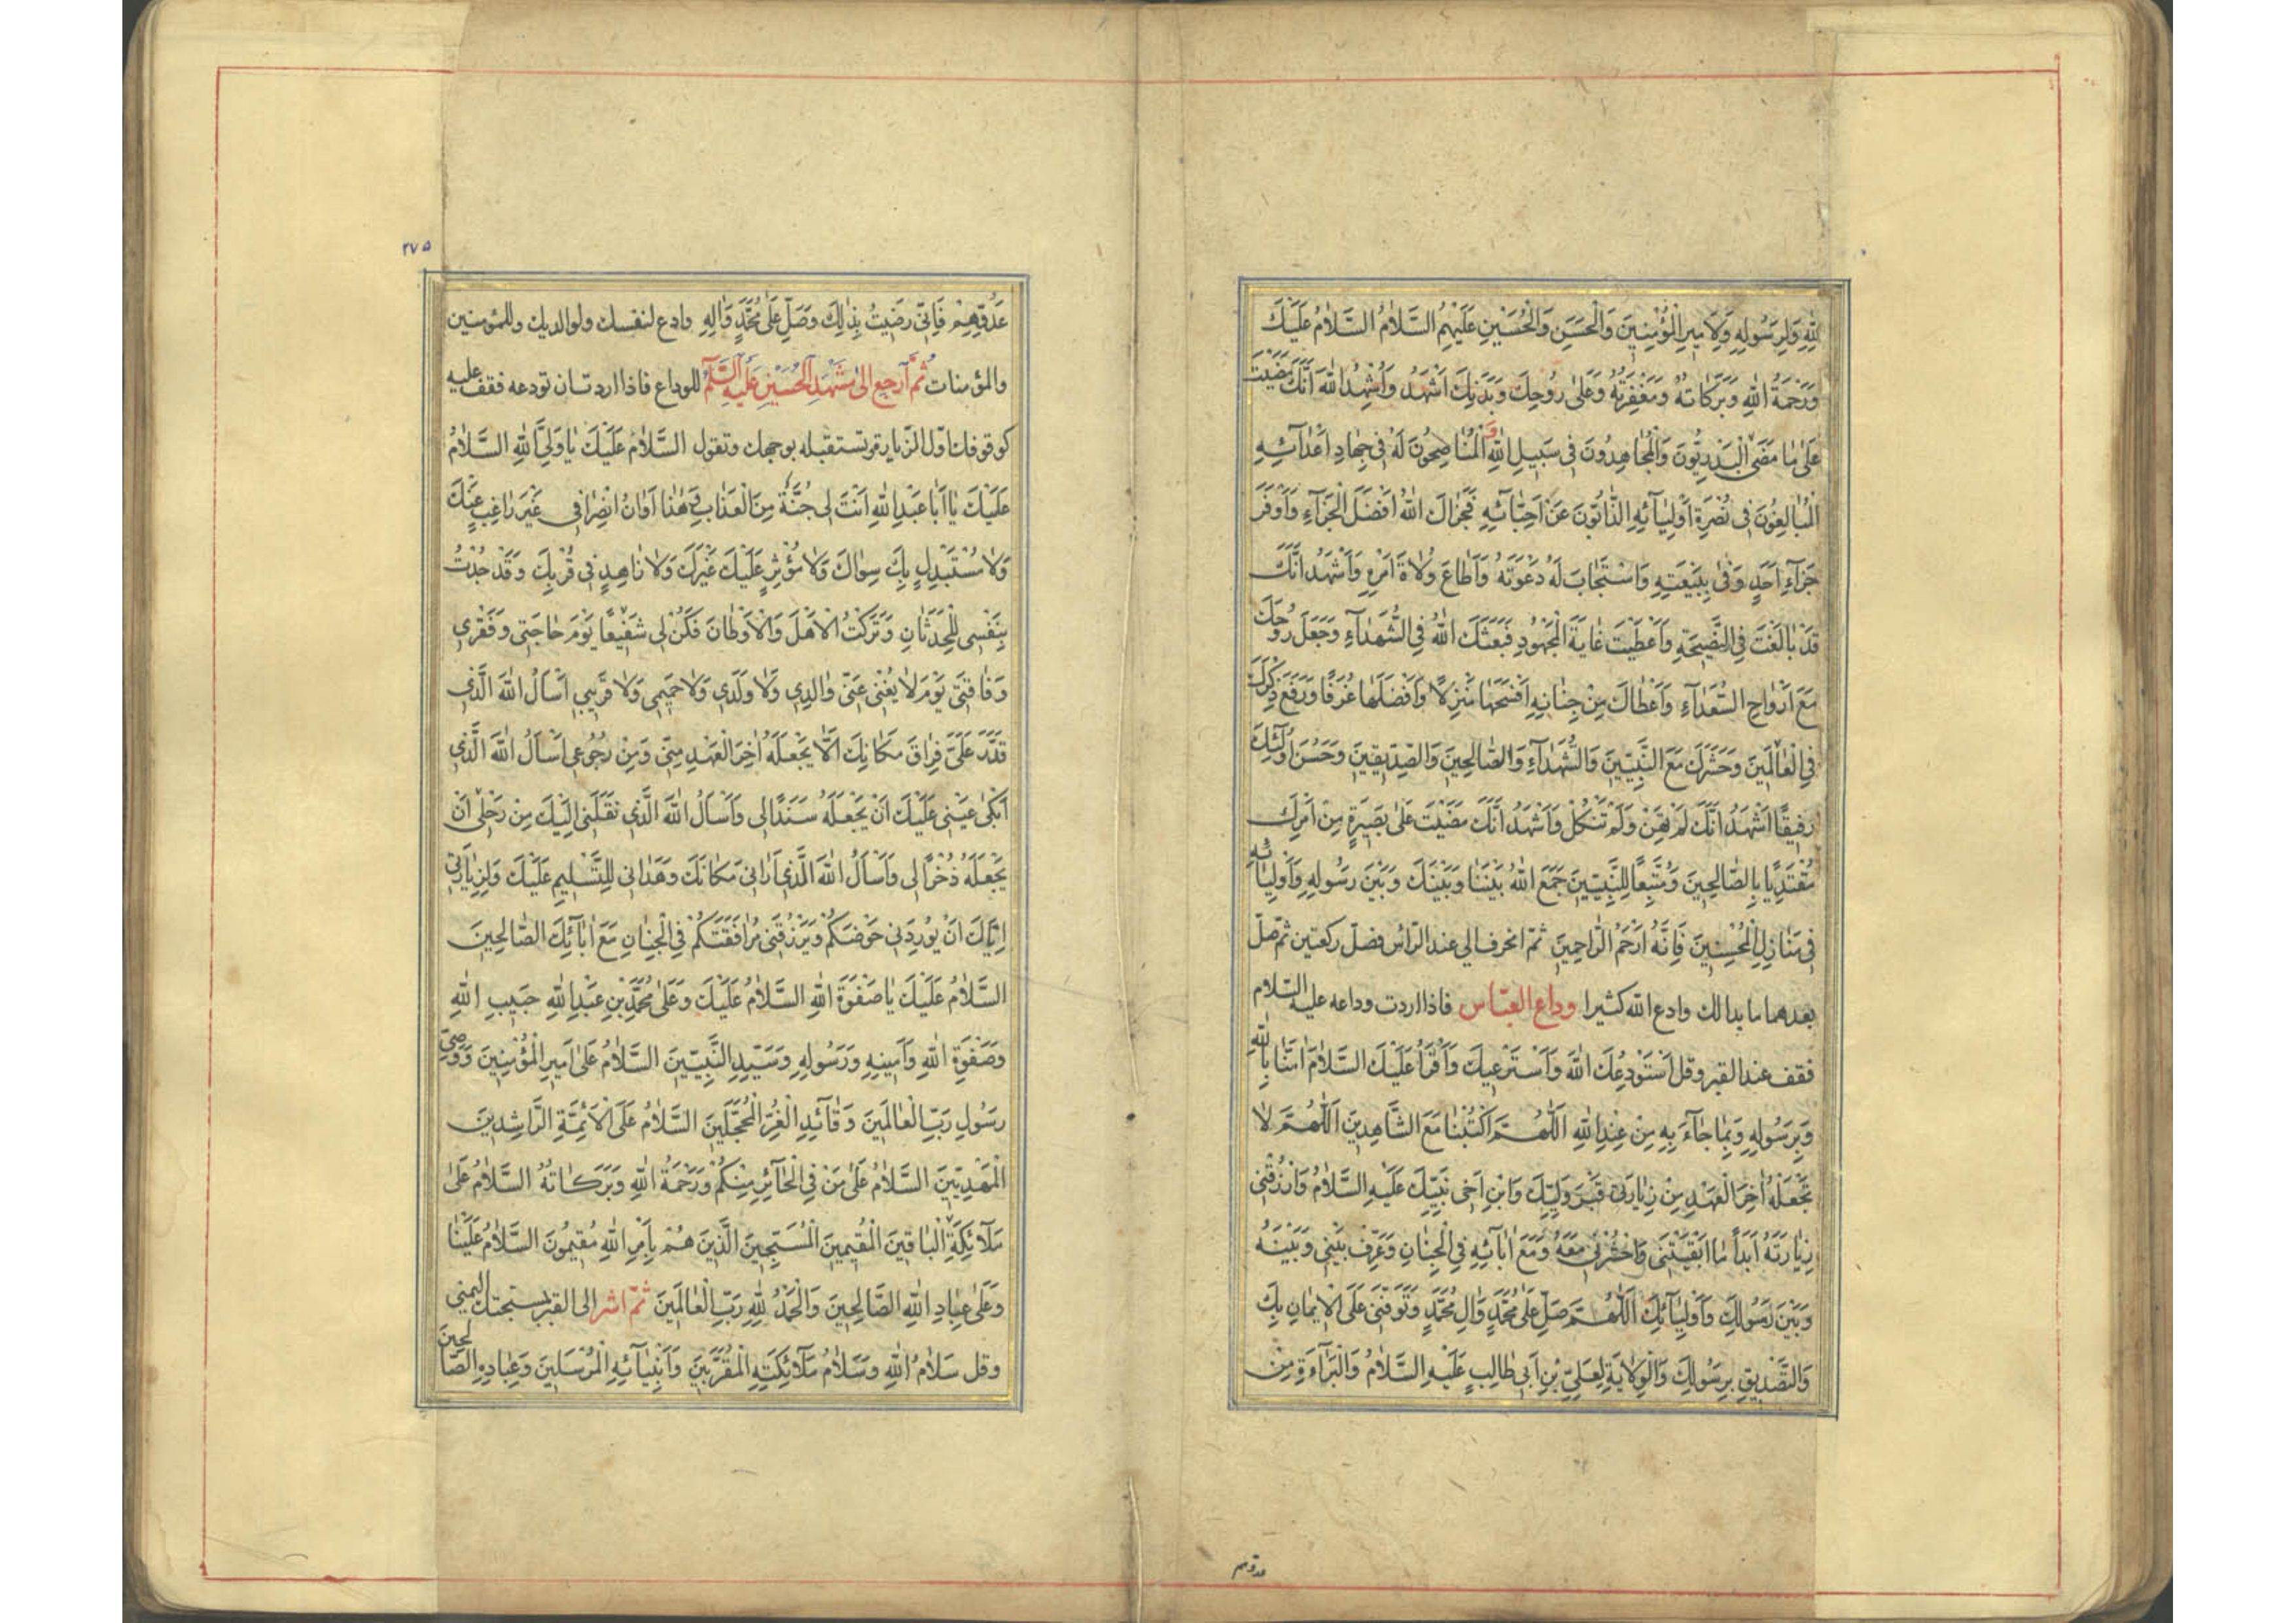 لِلّٰهِ وَلِرَسُولِهِ وَلِاَمِيرِ الْمُؤْمِنِينَ وَالْحَسَنِ وَالْحُسَيْنِ عَلَيْهِمُ السَّلٰامُ السَّلٰامُ عَلَيْكَ
وَرَحْمَةُ اللّٰهِ وَبَرَكٰاتُهُ وَمَغْفِرَتُهُ وَعَلىٰ رُوحِكَ وَبَدَنِكَ اَشْهَدُ وَاُشْهِدُ اللّٰهَ اَنَّكَ مَضَيْتَ
عَلىٰ مٰا مَضىٰ الْبَدْرِيُّونَ وَالْمُجٰاهِدُونَ فِى سَبِيلِ اللّٰهِ وَ الْمُنٰاصِحُونَ لَهُ فِى جِهٰادِ اَعْدٰآئِهِ
الْمُبٰالِغُونَ فِى نُصْرَةِ اَوْلِيٰآئِهِ الذّٰابُّونَ عَنْ اَحِبّٰآئِهِ فَجَزٰاكَ اللّٰهُ اَفْضَلَ الْجَزٰآءِ وَاَوْفَرَ
جَزٰآءِ اَحَدٍ وَفىٰ بِبَيْعَتِهِ وَاسْتَجٰابَ لَهُ دَعْوَتَهُ وَاَطٰاعَ وُلٰاةَ اَمْرِهِ وَاَشْهَدُ اَنَّكَ
قَدْ بٰالَغْتَ فِى النَّصِيحَةِ وَاَعْطَيْتَ غٰايَةَ الْمَجْهُودِ فَبَعَثَكَ اللّٰهُ فِى الشُّهَدٰآءِ وَجَعَلَ رُوحَكَ
مَعَ اَرْوٰاحِ السُّعَدٰآءِ وَاَعْطٰاكَ مِنْ جِنٰانِهِ اَفْسَحَهٰا مَنْزِلًا وَاَفْضَلَهٰا غُرَفًا وَرَفَعَ ذِكْرَكَ
فِى الْعٰالَمِينَ وَحَشَرَكَ مَعَ النَّبِيِّينَ وَالشُّهَدٰآءِ وَالصّٰالِحِينَ وَالصِّدِّيقِينَ وَحَسُنَ اُولٰئِكَ
رَفِيقًا اَشْهَدُ اَنَّكَ لَمْ تَهِنْ وَلَمْ تَنْكُلْ وَاَشْهَدُ اَنَّكَ مَضَيْتَ عَلىٰ بَصِيرَةٍ مِنْ اَمْرِكَ
مُقْتَدِيًا بِالصّٰالِحِينَ وَمُتَّبِعًا لِلنَّبِيِّينَ جَمَعَ اللّٰهُ بَيْنَنٰا وَبَيْنَكَ وَبَيْنَ رَسُولِهِ وَاَوْلِيٰآئِهِ
فِى مَنٰازِلِ الْمُحْسِنِينَ فَاِنَّهُ اَرْحَمُ الرّٰاحِمِينَ ثمّ انحرف الي عند الرّاس فصلّ ركعتين ثمّ صلّ
بعدهما ما بدا لك وادع اللّه كثيرا وداع العبّاس فاذا اردت وداعه عليه السّلام
فقف عند القبر وقل اَسْتَوْدِعُكَ اللّٰهَ وَاَسْتَرْعِيكَ وَاَقْرَاُ عَلَيْكَ السَّلٰامَ اٰمَنّٰا بِاللّٰهِ
وَبِرَسُولِهِ وَبِمٰا جٰآءَ بِهِ مِنْ عِنْدِ اللّٰهِ اَللّٰهُمَّ اكْتُبْنٰا مَعَ الشّٰاهِدِينَ اَللّٰهُمَّ لٰا
تَجْعَلْهُ اٰخِرَ الْعَهْدِ مِنْ زِيٰارَتِى قَبْرَ وَلِيِّكَ وَابْنِ اَخِى نَبِيِّكَ عَلَيْهِ السَّلٰامُ وَارْزُقْنِى
زِيٰارَتَهُ اَبَدًا مٰا اَبْقَيْتَنِى وَاحْشُرْنِى مَعَهُ وَمَعَ اٰبٰآئِهِ فِى الْجِنٰانِ وَعَرِّفْ بَيْنِى وَبَيْنَهُ
وَبَيْنَ رَسُولِكَ وَاَوْلِيٰآئِكَ اَللّٰهُمَّ صَلِّ عَلىٰ مُحَمَّدٍ وَاٰلِ مُحَمَّدٍ وَتَوَفَّنِى عَلَى الْاِيمٰانِ بِكَ
وَالتَّصْدِيقِ بِرَسُولِكَ وَالْوِلٰايَةِ لِعَلِيِّ بْنِ اَبِى طٰالِبٍ عَلَيْهِ السَّلٰامُ وَالْبَرٰآءَةِ مِنْ
عدوّهم
٢٧٥
عَدُوِّهِمْ فَاِنِّى رَضِيتُ بِذٰلِكَ وَصَلِّ عَلىٰ مُحَمَّدٍ وَاٰلِهِ وادع لنفسك ولوالديك وللمؤمنين
والمؤمنات ثُمَّ ارجع الىٰ مَشْهَدِ الْحُسَيْنِ عَلَيْهِ السَّلٰمُ للوداع فاذا اردت ان تودعه فقف عليه
كوقوفك اوّل الزّيارة وتستقبله بوجهك وتقول السَّلٰامُ عَلَيْكَ يٰا وَلِيَّ اللّٰهِ السَّلٰامُ
عَلَيْكَ يٰا اَبٰا عَبْدِ اللّٰهِ اَنْتَ لِى جُنَّةٌ مِنَ الْعَذٰابِ وَهٰذٰا اَوٰانُ انْصِرٰافِى غَيْرَ رٰاغِبٍ عَنْكَ
وَلٰا مُسْتَبْدِلٍ بِكَ سِوٰاكَ وَلٰا مُؤْثِرٍ عَلَيْكَ غَيْرَكَ وَلٰا زٰاهِدٍ فِى قُرْبِكَ وَقَدْ جُدْتُ
بِنَفْسِى لِلْحَدَثٰانِ وَتَرَكْتُ الْاَهْلَ وَالْاَوْطٰانَ فَكُنْ لِى شَفِيعًا يَوْمَ حٰاجَتِى وَفَقْرِى
وَفٰاقَتِى يَوْمَ لٰا يُغْنِى عَنِّى وٰالِدِى وَلٰا وَلَدِى وَلٰا حَمِيمِى وَلٰا قَرِيبِى اَسْاَلُ اللّٰهَ الَّذِى
قَدَّرَ عَلَيَّ فِرٰاقَ مَكٰانِكَ اَلّٰا يَجْعَلَهُ اٰخِرَ الْعَهْدِ مِنِّى وَمِنْ رُجُوعِى اَسْاَلُ اللّٰهَ الَّذِى
اَبْكىٰ عَيْنِى عَلَيْكَ اَنْ يَجْعَلَهُ سَنَدًا لِى وَاَسْاَلُ اللّٰهَ الَّذِى نَقَلَنِى اِلَيْكَ مِنْ رَحْلِى اَنْ
يَجْعَلَهُ ذُخْرًا لِى وَاَسْاَلُ اللّٰهَ الَّذِى اَرٰانِى مَكٰانَكَ وَهَدٰانِى لِلتَّسْلِيمِ عَلَيْكَ وَلِزِيٰارَتِى
اِيّٰاكَ اَنْ يُورِدَنِى حَوْضَكُمْ وَيَرْزُقَنِى مُرٰافَقَتَكُمْ فِى الْجِنٰانِ مَعَ اٰبٰآئِكَ الصّٰالِحِينَ
السَّلٰامُ عَلَيْكَ يٰا صَفْوَةَ اللّٰهِ السَّلٰامُ عَلَيْكَ وَعَلىٰ مُحَمَّدِ بْنِ عَبْدِ اللّٰهِ حَبِيبِ اللّٰهِ
وَصَفْوَةِ اللّٰهِ وَاَمِينِهِ وَرَسُولِهِ وَسَيِّدِ النَّبِيِّينَ السَّلٰامُ عَلىٰ اَمِيرِ الْمُؤْمِنِينَ وَوَصِيِّ
رَسُولِ رَبِّ الْعٰالَمِينَ وَقٰآئِدِ الْغُرِّ الْمُحَجَّلِينَ السَّلٰامُ عَلَى الْاَئِمَّةِ الرّٰاشِدِينَ
الْمَهْدِيِّينَ السَّلٰامُ عَلىٰ مَنْ فِى الْحٰآئِرِ مِنْكُمْ وَرَحْمَةُ اللّٰهِ وَبَرَكٰاتُهُ السَّلٰامُ عَلىٰ
مَلٰآئِكَةِ الْبٰاقِينَ الْمُقِيمِينَ الْمُسَبِّحِينَ الَّذِينَ هُمْ بِاَمْرِ اللّٰهِ مُقِيمُونَ السَّلٰامُ عَلَيْنٰا
وَعَلىٰ عِبٰادِ اللّٰهِ الصّٰالِحِينَ وَالْحَمْدُ لِلّٰهِ رَبِّ الْعٰالَمِينَ ثمّ اشر الى القبر بمسبحتك اليمنى
وقل سَلٰامُ اللّٰهِ وَسَلٰامُ مَلٰآئِكَتِهِ الْمُقَرَّبِينَ وَاَنْبِيٰآئِهِ الْمُرْسَلِينَ وَعِبٰادِهِ الصّٰالِحِينَ